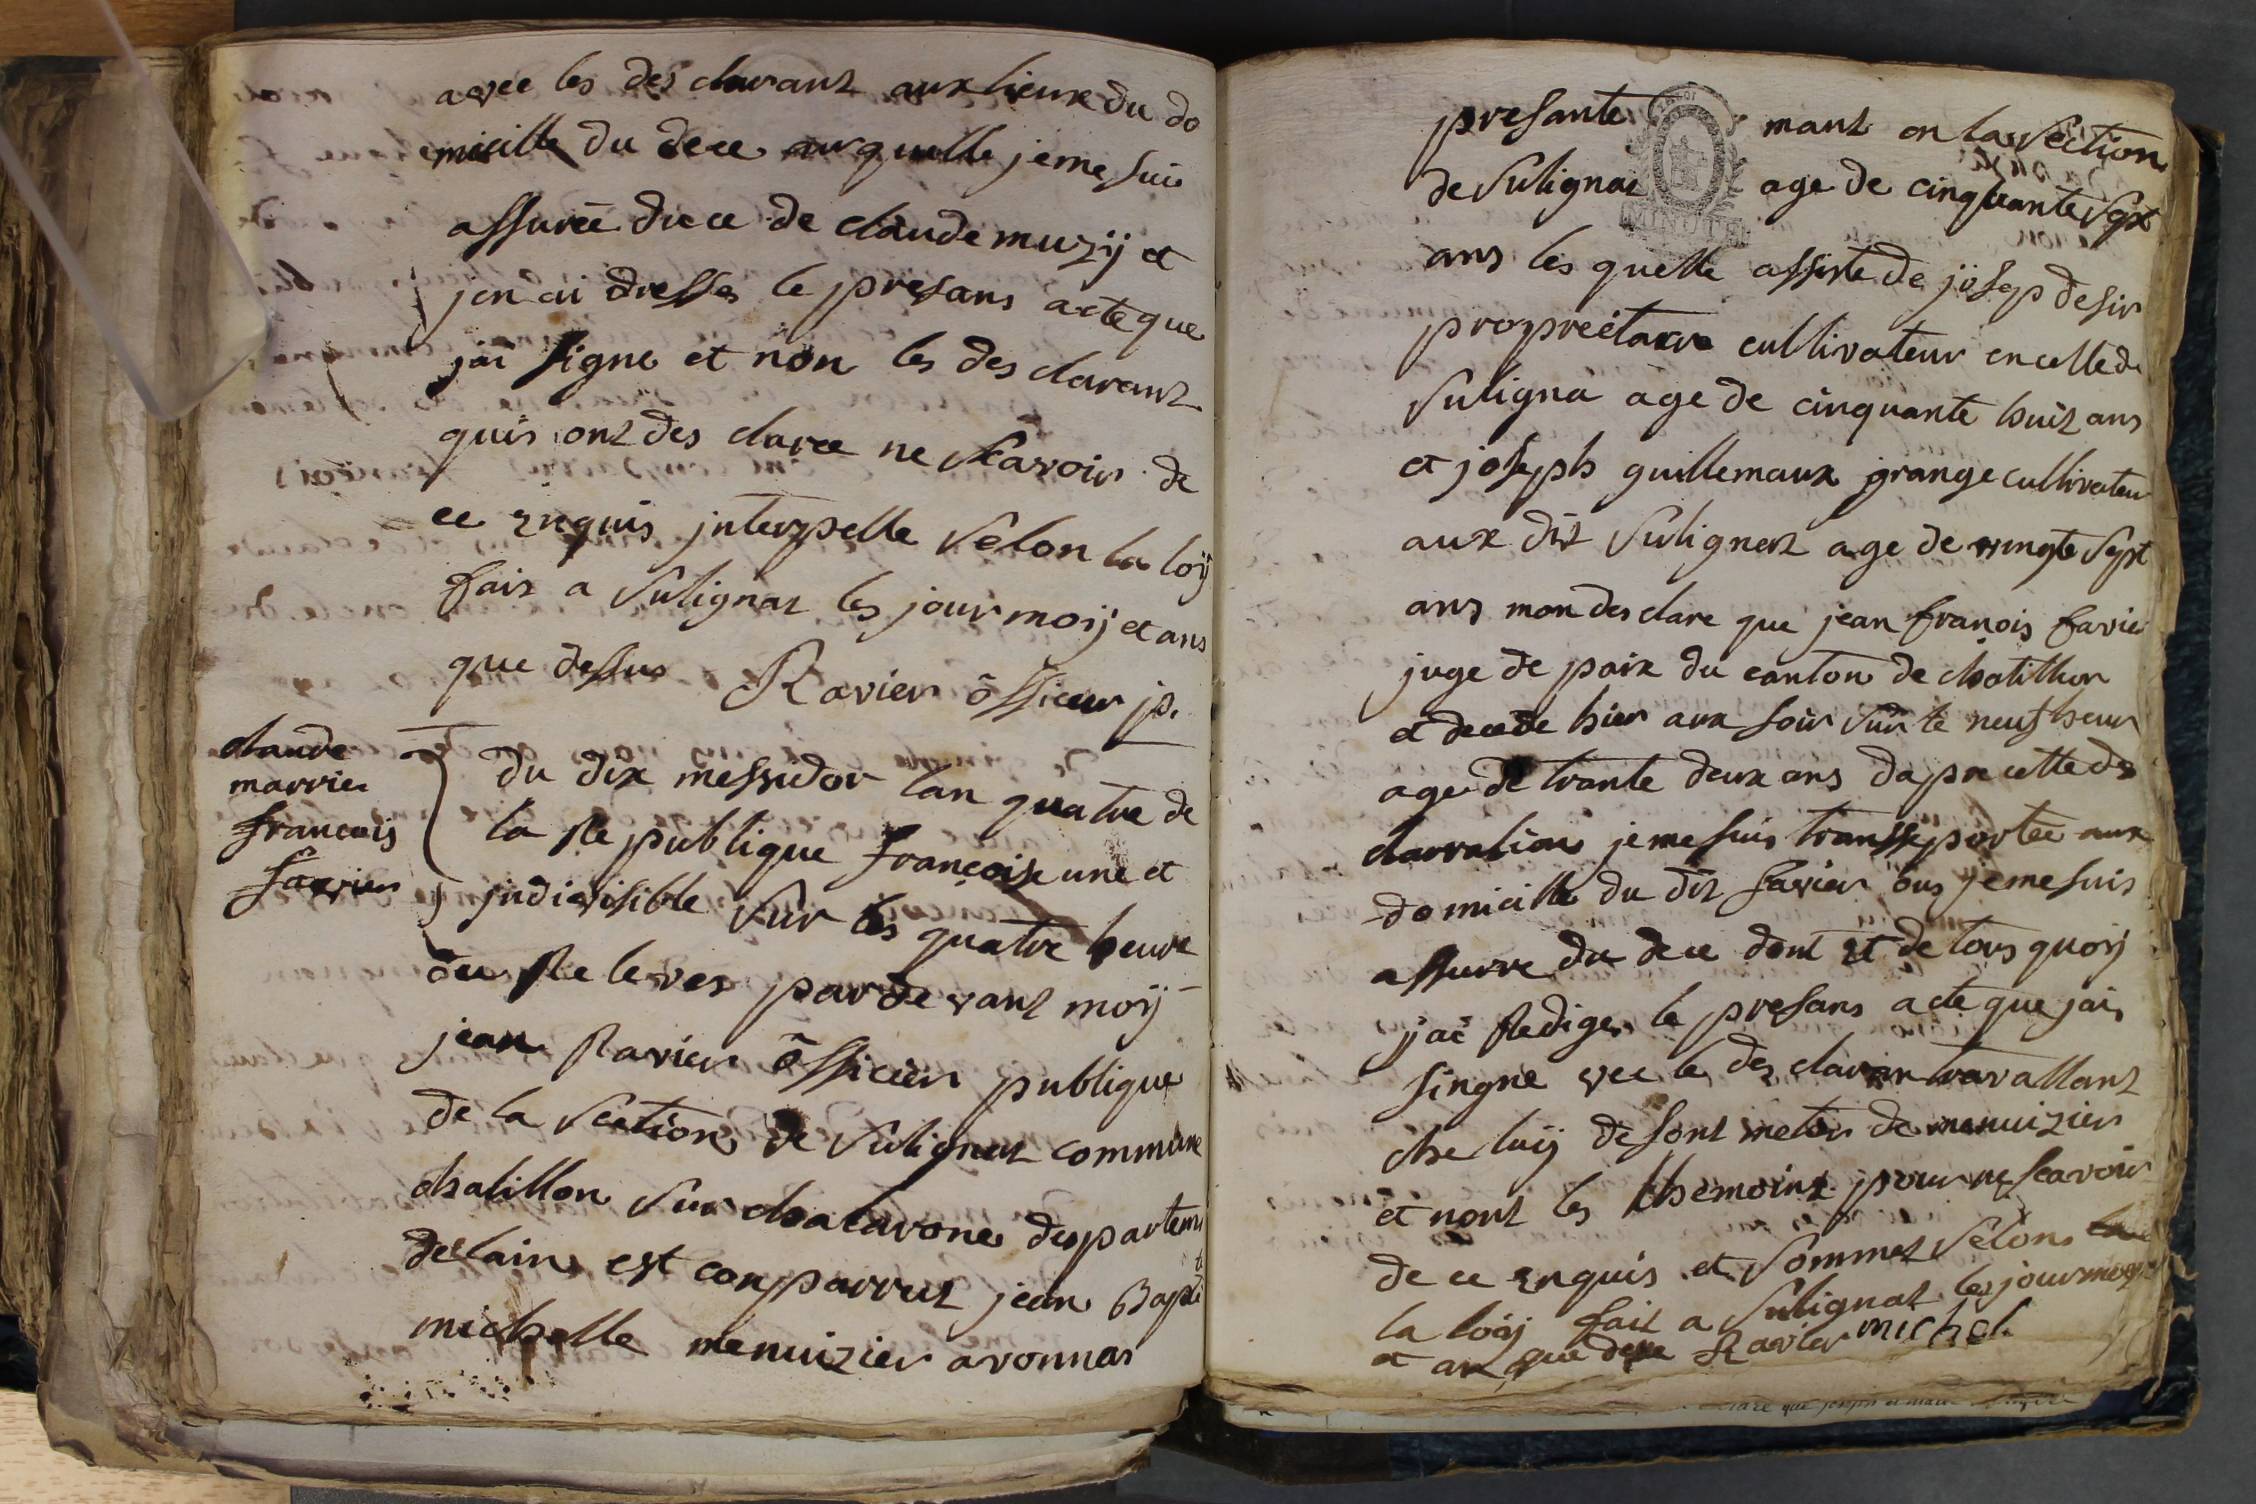 avec les des clarant aux lieux du do
micille du dece au quelle je me suis
assurée du ce de claude muzÿ et
jen ai dresses le presans acte que
jai signe et non les des clarant
quis ont des claree ne scavoir de
ce enquis jnterpelle selon la loÿ
fait a sulignat les jour moÿ et ans
que dessus Ravier ôfficier p.
claude
marrier
francois
favier
du dix messidor lan quatre de
la Republique françoise une et
jndivisible sur les quatre heure
du Releves par de vant moÿ
jean Ravier ôfficier publique
de la section de sulignat commune
chatillon sur chalarone departem
t
de lain est conparrut jean Bapti
michelle menuizier a vonnas
presante mant en la section
de sulignat age de cinquante sept
ans les quelle assiste de josep desir
propreétaire cultivateur en cellede
suligna age de cinquante huit ans
et joseph guillemaux grange cultivateur
aux dit sulignat age de vingte sept
ans mon des clare que jean françois favier
juge de paix du canton de chatillon
et decede hier aux soir sur te neuf heur
age de trante deux ans dapre cette des
clarration je me suis transsportée aux
domicille du dit favier ous je me suis
assurre du dece dont et de tous quoÿ
jai Rediges le presans acte que jai
singne vec le des claran travallant
che luÿ de sont metier de menuizier
et nont les themoint pour ne scavoir
de ce enquis et sommet selons
la loÿ fait a sulignat les jour moy
et an que desu Ravier michel